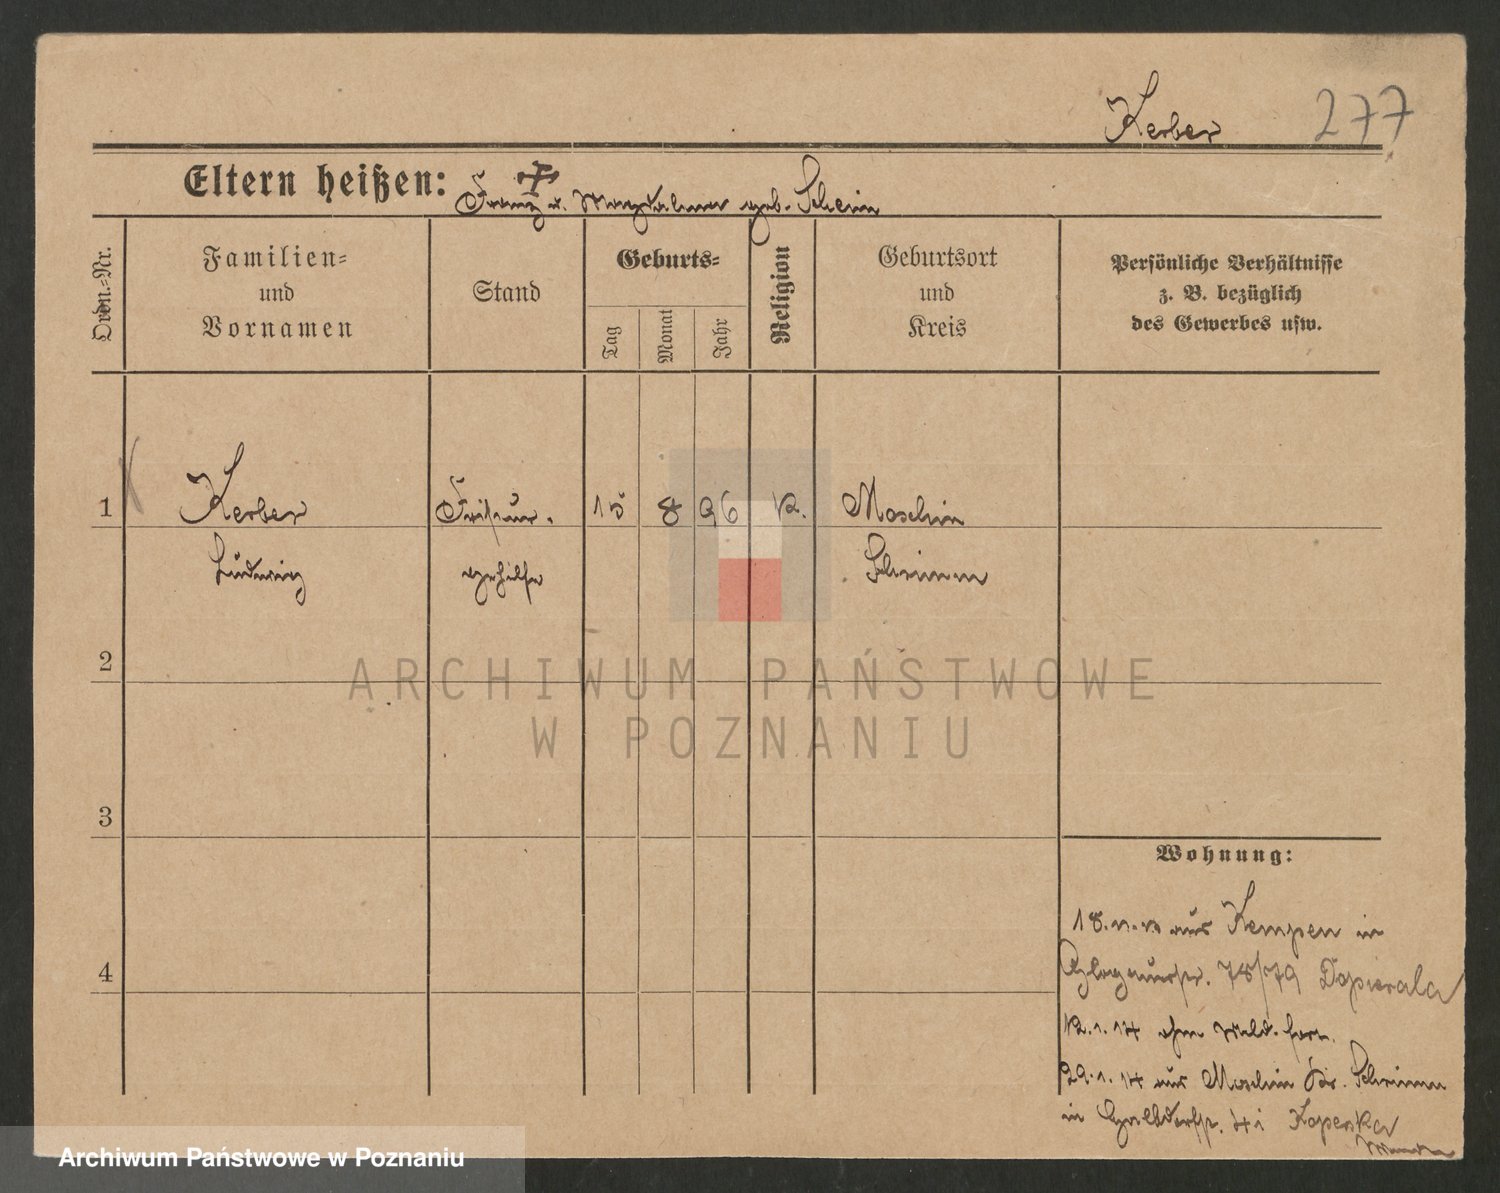 Kerber 277
Eltern heißen: Franz u. Magdalena geb. Schein
Ordn.-Nr.
Familien-
und
Vornamen
Stand
Geburts-
Tag
Monat
Jahr
Religion
Geburtsort
und
Kreis
Persönliche Verhältnisse
z. B. bezüglich
des Gewerbes usw.
1 Kerber Friseur. 15 8 96 K. Moschin
Ludwig gehilfe Schrimm
2
3
4
Wohnung:
18. aus Kempen in
Glogauerstr. 78/79 Dopierala
12.1.14 ohne Meld. fort.
29.1.14 aus Moschin Kr. Schrimm
in Koperska
ARCHIWUM PAŃSTWOWE
W POZNANIU
Archiwum Państwowe w Poznaniu